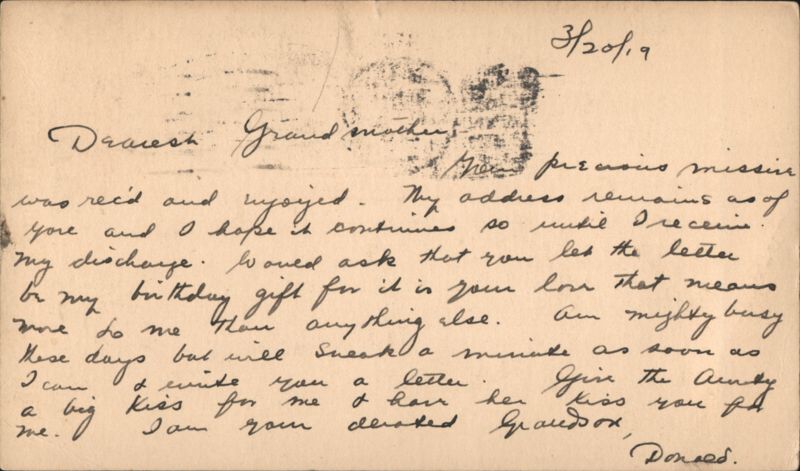 3/20/19
Dearest Grandmother,
Your precious missive
was rec'd and enjoyed. My address remains as of
yore and I hope it continues so until I receive
my discharge. Would ask that you let the letter
be my birthday gift for it is your love that means
more to me than anything else. Am mighty busy
these days but will sneak a minute as soon as
I can & write you a letter. Give the Aunty
a big kiss for me & have her kiss you for
me. I am your devoted Grandson,
Donald.